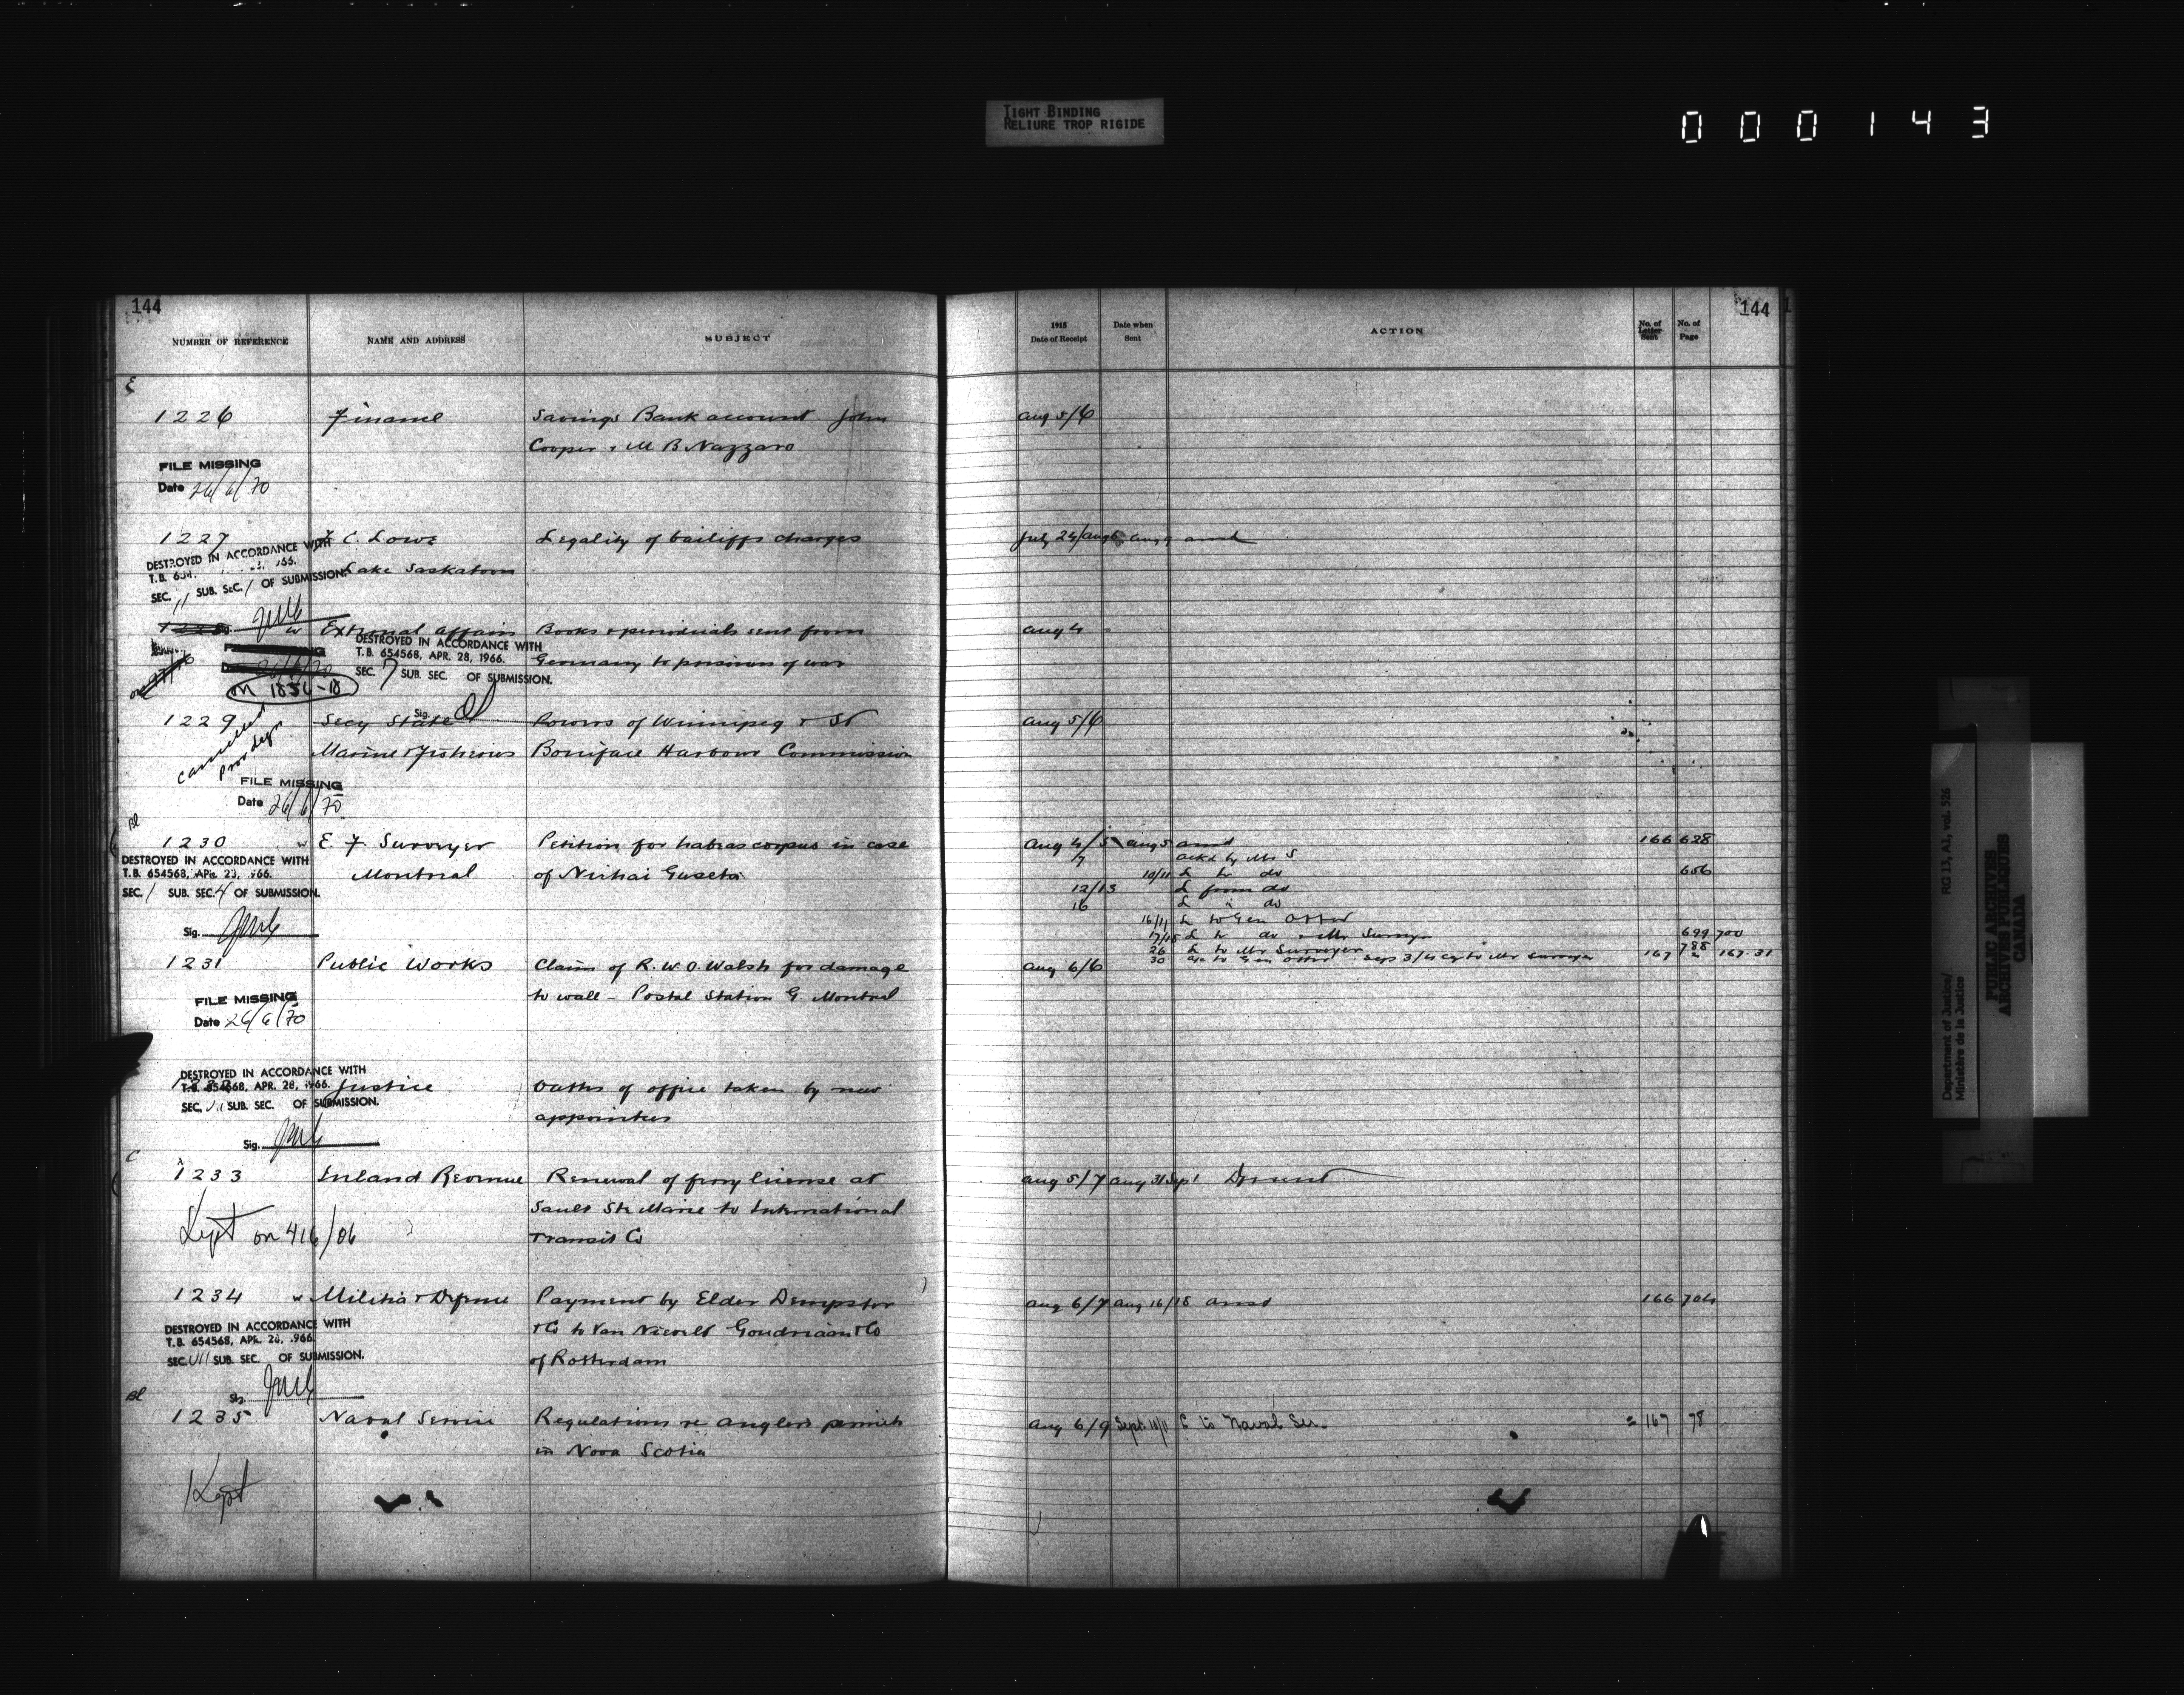 TIGHT BINDING
RELIURE TROP RIGIDE
000143
144
NUMBER OF REFERENCE NAME AND ADDRESS SUBJECT
1226 Finance Savings Bank account John
Cooper & M B Nazzaro
FILE MISSING
Date 26/6/70
1227 C. Lowe Legality of bailiffs charges
DESTROYED IN ACCORDANCE WITH
T.B. 654
Lake Saskatoon
SEC. 11 SUB. SEC. 1 OF SUBMISSION.
External Affairs Books & periodicals sent from
Germany to prisoners of war
DESTROYED IN ACCORDANCE WITH
T.B. 654568, APR. 28, 1966.
SEC. 7 SUB. SEC. OF SUBMISSION.
on 1856-18
Sig.
1229 Secy State Powers of Winnipeg & St
Marine & Fisheries Boniface Harbour Commission
cancelled
FILE MISSING
Date 26/6/70
Bl
1230 w E. F. Surveyer Petition for habeas corpus in case
Montreal of Nichai Guseta
DESTROYED IN ACCORDANCE WITH
T.B. 654568, APR. 28, 1966.
SEC. 1 SUB. SEC. 4 OF SUBMISSION.
Sig.
1231 Public Works Claim of R. W. O. Walsh for damage
to wall - Postal Station G Montreal
FILE MISSING
Date 26/6/70
DESTROYED IN ACCORDANCE WITH
T.B. 654568, APR. 28, 1966.
SEC. VII SUB. SEC. OF SUBMISSION.
Sig.
Justice Oaths of office taken by new
appointees
C
1233 Inland Revenue Renewal of ferry license at
Sault Ste Marie to International
Transit Co
Kept on 416/06
1234 w Militia & Defence Payment by Elder Dempster
& Co to Van Nievelt Goudriaan & Co
of Rotterdam
DESTROYED IN ACCORDANCE WITH
T.B. 654568, APR. 28, 1966
SEC. VII SUB. SEC. OF SUBMISSION.
Sig.
Bl
1235 Naval Service Regulations re anglers permits
in Nova Scotia
Kept
144
1915
Date of Receipt
Date when
Sent
ACTION
No. of
Letter
Sent
No. of
Page
Aug 5/6
July 24/Aug 6 Aug 9 ansd
Aug 4
Aug 5/6
Aug 4/5 Aug 5 ansd 166 628
7 ackd by Mr S
10/11 L to do 656
12/13 L from do
16 L " do
16/17 L to Gen Otter
17/18 L to do & Mr Surveyer 699 700
26 L to Mr Surveyer 788
30 to Gen Otter Sep 3/4 cy to Mr Surveyer 167 2 167.31
Aug 6/6
Aug 5/7 Aug 31 Sept 1
Aug 6/7 Aug 16/18 ansd 166 704
Aug 6/9 Sept 10/11 L to Naval Ser. 167 78
Department of Justice/
Ministère de la Justice
RG 13, A1, vol. 526
PUBLIC ARCHIVES
ARCHIVES PUBLIQUES
CANADA